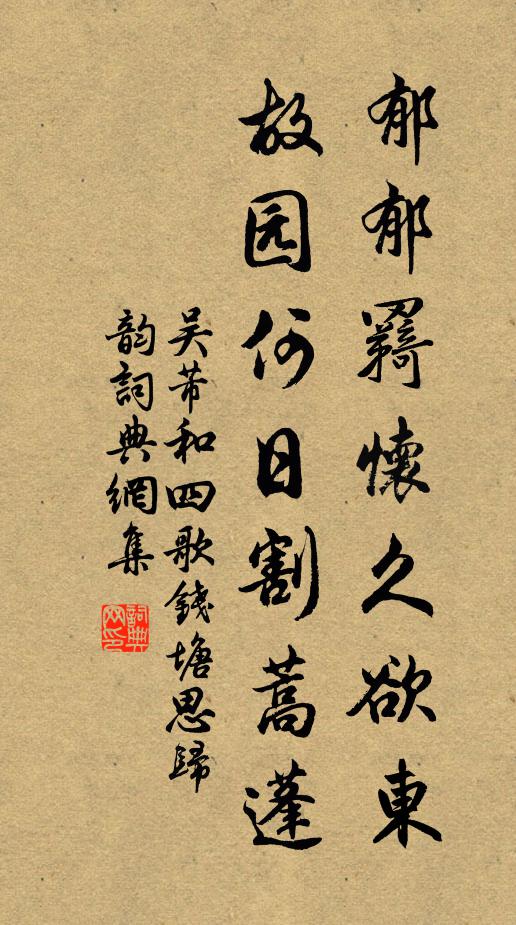 郁郁羁懷久欲東
故园何日割蒿蓬
吴芾和四歌錢塘思歸
韵詞典網集
詞典网印